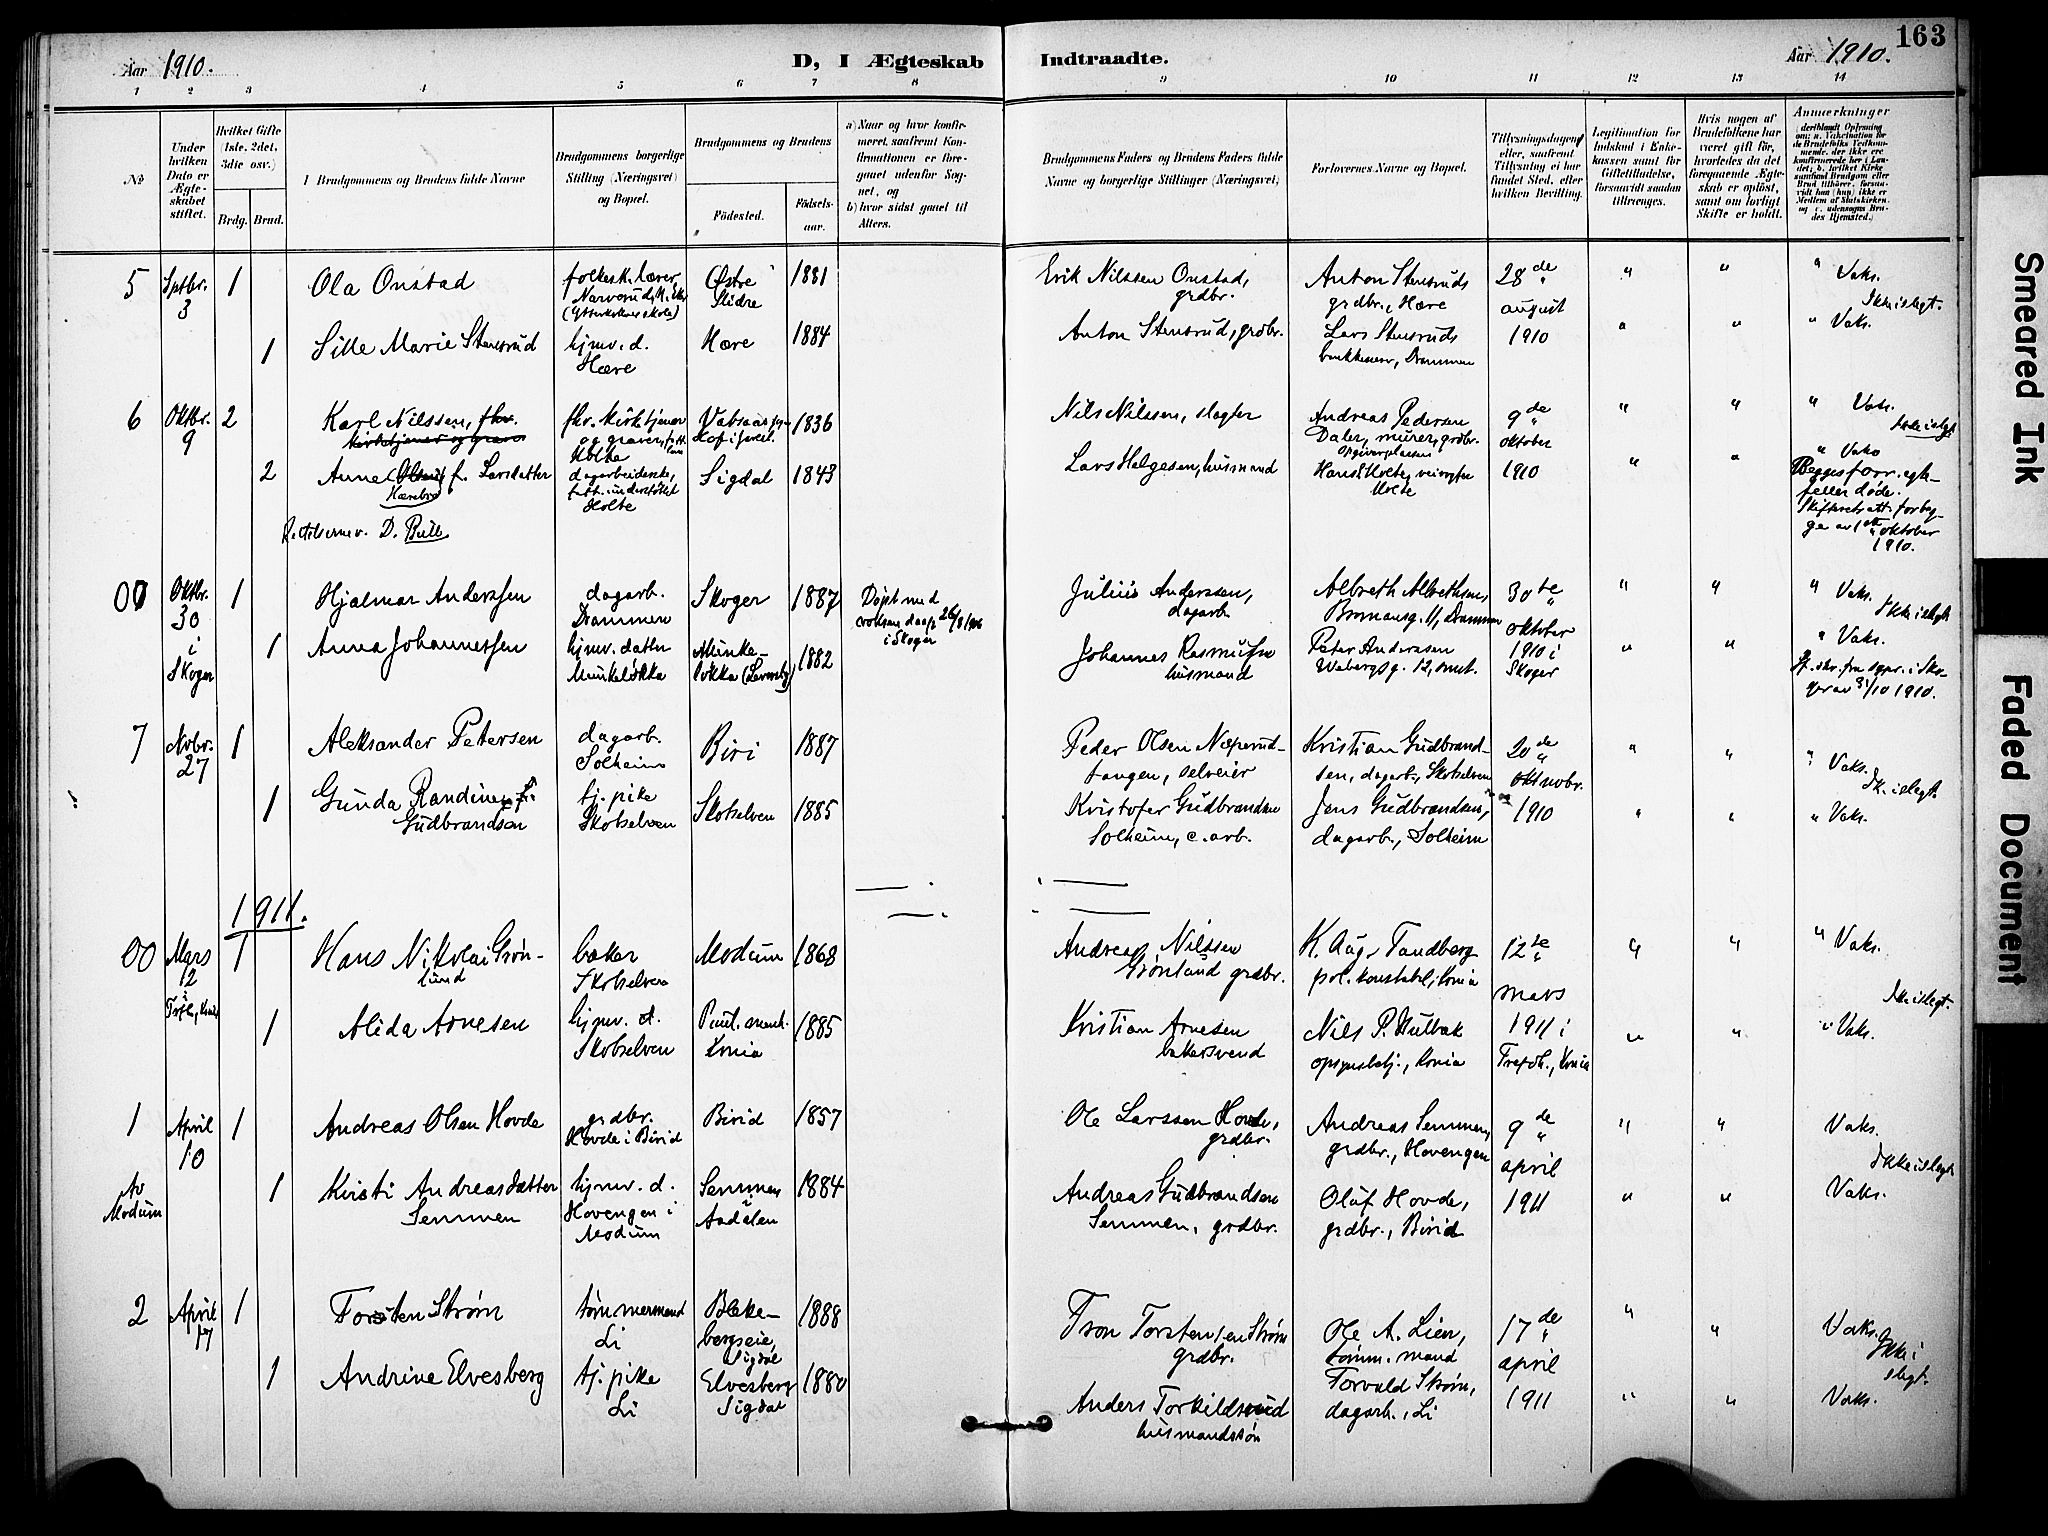 163
Aar 1910.
D, I Ægteskab Indtraadte.
Aar 1910.
1 2 3 4 5 6 7 8 9 10 11 12 13 14
No
Under hvilken Dato er Ægteskabet stiftet.
Hvilket Gifte (1ste, 2det, 3die osv.)
Brdg. Brud.
Brudgommens og Brudens fulde Navne
Brudgommens borgerlige Stilling (Næringsvei) og Bopæl.
Brudgommens og Brudens
Fødested.
Fødselsaar.
a) Naar og hvor konfirmeret, saafremt Konfirmationen er foregaaet udenfor Sognet, og
b) hvor sidst gaaet til Alters.
Brudgommens Faders og Brudens Faders fulde Navne og borgerlige Stillinger (Næringsvei)
Forlovernes Navne og Bopæl.
Tillysningsdagene eller, saafremt Tillysning ei har fundet Sted, efter hvilken Bevilling.
Legitimation for Indskud i Enkekassen samt for Giftetilladelse, forsaavidt saadan tiltrænges.
Hvis nogen af Brudefolkene har været gift før, hvorledes da det foregaaende Ægteskab er opløst, samt om lovligt Skifte er holdt.
Anmerkninger
5 Sptbr. 3 1 Ola Onstad folkesk. lærer Østre Slidre 1881 Erik Nilssen Onstad, grdbr. Anton Stensruds grdbr., Hære 28de august 1910 " " " Vaks. Ikke i slegt.
1 Sille Marie Stensrud hjmv. d. Hære Hære 1884 Anton Stensrud, grdbr. Lars Stensruds Drammen " " " Vaks.
6 Oktbr. 9 2 Karl Nilssen, fhv. kirketjener og graver fhv. kirketjener og graver, Holte 1836 Nils Nilssen, slagter Andreas Pedersen Daler, murer, grdbr. 9de oktober 1910 " " " Vaks. Ikke i slegt
2 Anne (Olsen) f. Larsdatter Hærebro dagarbeiderske, fatt. understøttet Holte Sigdal 1843 Lars Helgesen, husmand Hans Holte, Holte " " " Vaks
Begges forr. egtefeller døde. Skifteretsatt. forligger av 1ste oktober 1910.
D. Bull
00 Oktbr. 30 i Skoger 1 Hjalmar Anderssen dagarb. Drammen Skoger 1887 Døpt med i Skoger Julius Anderssen, dagarb. Albreth Albrethsen, 11, Drammen 30te oktober 1910 i Skoger " " " Vaks. Ikke i slegt
1 Anna Johannessen hjmv. datter Munkeløkka Munkeløkka 1882 Johannes Rasmussen husmand Peter Anderssen 12, smst. " " " Vaks.
31/10 1910.
7 Novbr. 27 1 Aleksander Petersen dagarb. Solheim Biri 1887 Peder Olsen Næperudtangen, selveier Kristian Gudbrandsen, dagarb., Skotselven 20de novbr. 1910 " " " Vaks. Ik. i slegt.
1 Gunda Randine Gudbrandsen tj. pike Skotselven Skotselven 1885 Kristofer Gudbrandsen Solheim, c. arb. Jens Gudbrandsen, dagarb., Solheim " " " Vaks.
1911.
00 Mars 12 1 Hans Nikolai Grønlund baker Skotselven Modum 1868 Andreas Nilssen Grønland grdbr. K. Aug. Tandberg pol. konstabel, Kr.nia 12te mars 1911 i Trefdh., Kr.nia " " " Vaks. Ik. i slegt.
1 Alida Arnesen hjmv. d. Skotselven Kr.nia 1885 Kristian Arnesen bakersvend Nils P. Hulbak opsynsbetj., Kr.nia " " " Vaks.
1 April 10 1 Andreas Olsen Hovde grdbr. Hovde i Birid Birid 1857 Ole Larssen Hovde, grdbr. Andreas Semmen, grdbr., Hovengen 9de april 1911 " " Vaks. Ikke i slegt
Av Modum 1 Kristi Andreasdatter Semmen hjmv. d. Hovengen i Modum Semmen i Aadalen 1884 Andreas Gudbrandsen Semmen, grdbr. Oluf Hovde, grdbr., Birid " " Vaks.
2 April 17 1 Torsten Strøm tømmermand Li Blekebergseie, Sigdal 1888 Tron Torstensen Strøm grdbr. Ole A. Lien, tømm. mand 17de april 1911 " " Vaks. Ikke i slegt.
1 Andrine Elvesberg tj. pike Li Elvesberg Sigdal 1880 Anders Torkildsrud husmandssøn Torvald Strøm, dagarb., Li " " Vaks.
Smeared Ink
Faded Document